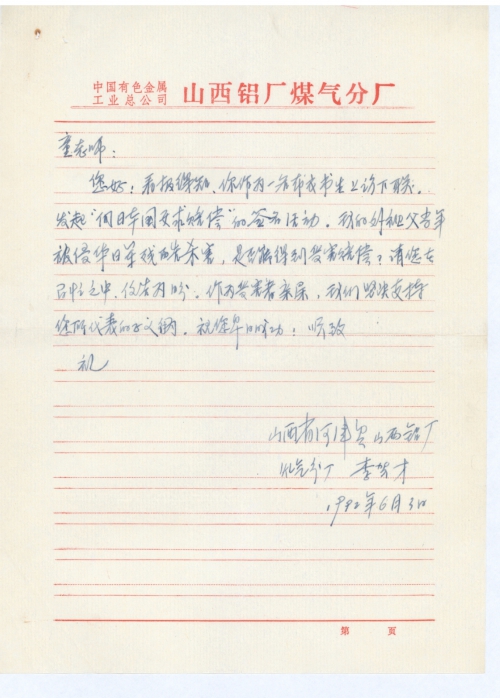 中国有色金属
工业总公司 山西铝厂煤气分厂
童老师：
您好！看报得知，你作为一名布衣书生上访下联，
发起“向日本国要求赔偿”的签名活动。我的外祖父当年
被侵华日军残酷杀害，是否能得到受害赔偿？请您在
百忙之中，告为盼。作为受害者亲属，我们坚决支持
您所代表的正义。祝您早日成功！顺致
礼
山西省河津县山西铝厂
煤气分厂 李 才
1992年6月3日
第 页